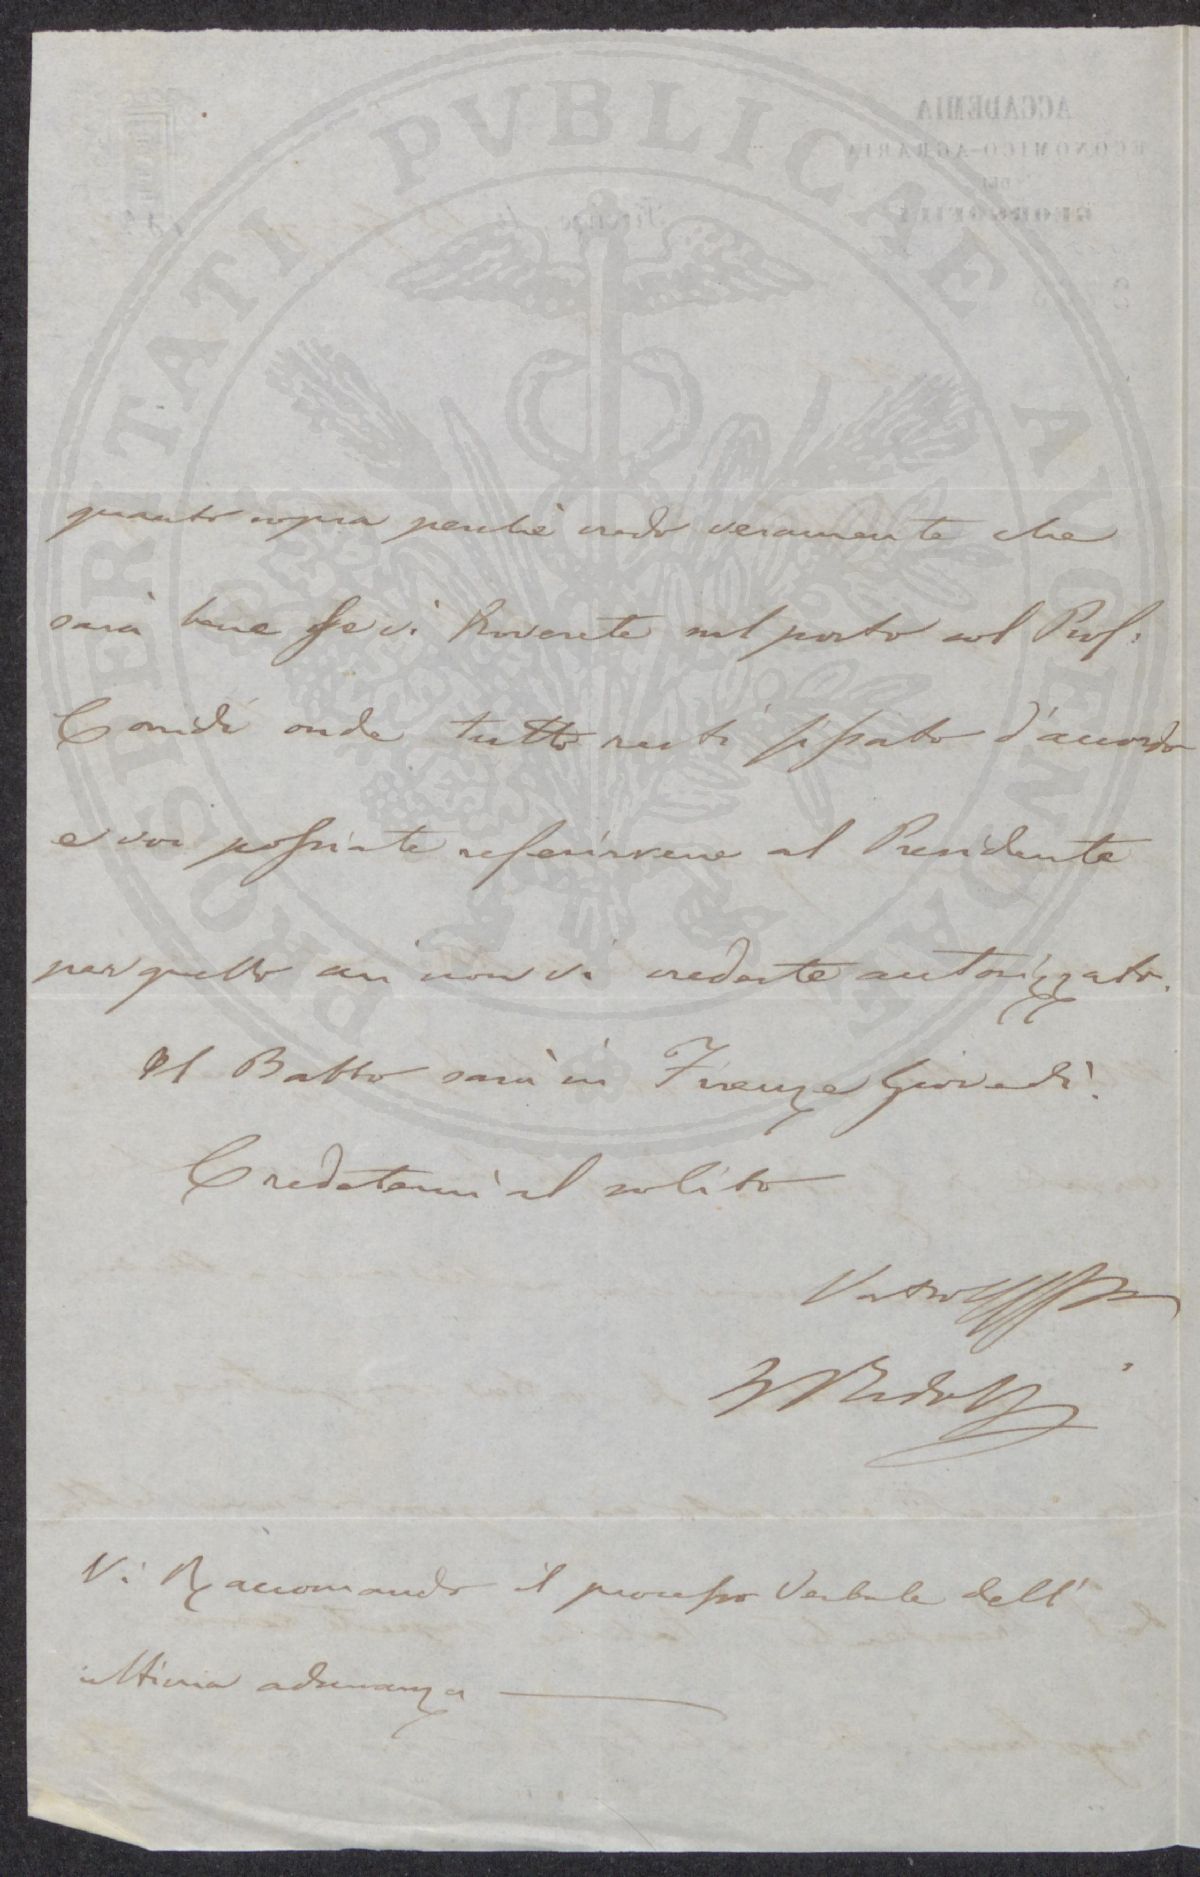 PROSPERITATI PUBLICAE AUGENDAE
ACCADEMIA
ECONOMICO-AGRARIA
DEI
GEORGOFILI
Firenze, li
quanto sopra perchè credo veramente che
sarà bene se vi troverete sul posto col Prof:
Coridi onde tutto resti fissato d'accordo
e voi possiate referirvene al Presidente
per quello cui non vi credeste autorizzato.
Il Babbo sarà in Firenze Giovedì.
Credetemi al solito
Vostro
Ridolfi
Vi Raccomando il processo Verbale dell'
ultima adunanza